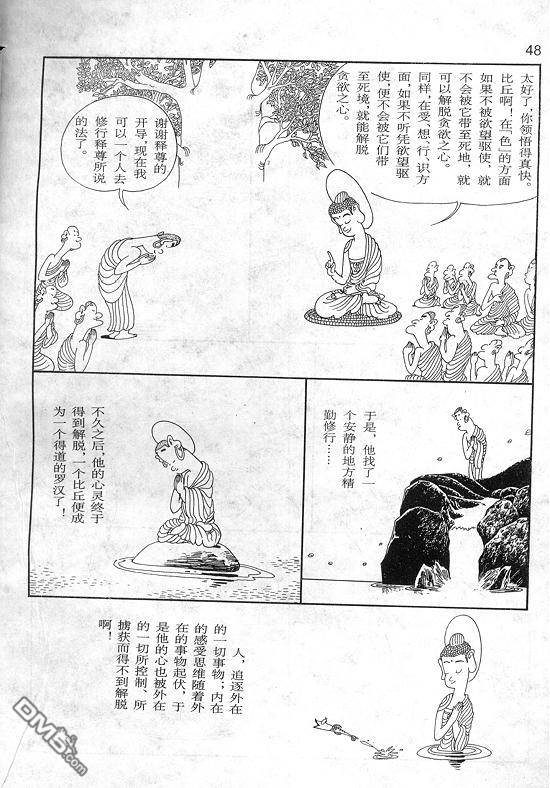 48
太好了,你领悟得真快。
比丘啊!在「色」的方面
如果不被欲望驱使、就
不会被它带至死地,就
可以解脱贪欲之心。
同样,在受、想、行、识方
面,如果不听凭欲望驱
使,便不会被它们带
至死境,就能解脱
贪欲之心。
谢谢释尊的
开导,现在我
可以一个人去
修行释尊所说
的法了。
于是,他找了一
个安静的地方精
勤修行……
不久之后,他的心灵终于
得到解脱,一个比丘便成
为一个得道的罗汉了!
人,追逐外在
的一切事物;内在
的感受思维随着外
在的事物起伏,于
是他的心也被外在
的一切所控制、所
掳获而得不到解脱
啊!
DM5.com